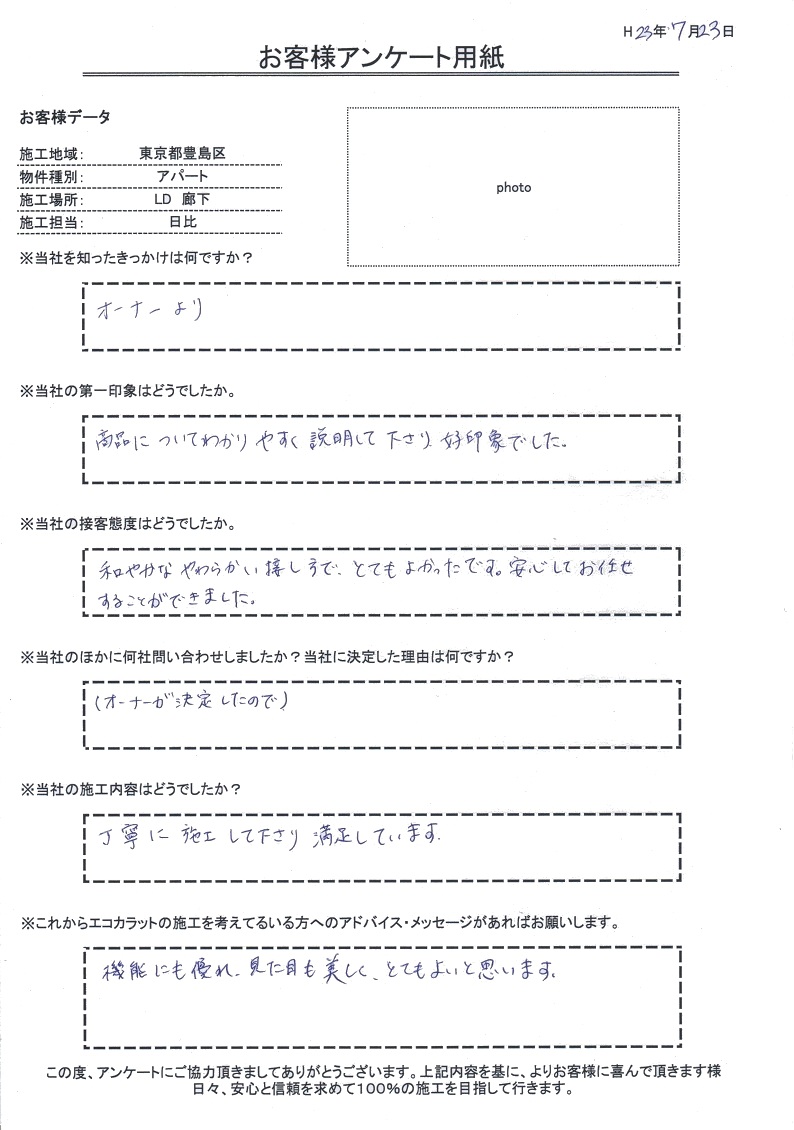 H 23年 7月23日
お客様アンケート用紙
お客様データ
施工地域： 東京都豊島区
物件種別： アパート
施工場所： LD 廊下
施工担当： 日比
photo
※当社を知ったきっかけは何ですか？
オーナーより
※当社の第一印象はどうでしたか。
商品についてわかりやすく説明して下さり、好印象でした。
※当社の接客態度はどうでしたか。
和やかなやわらかい接し方で、とてもよかったです。安心してお任せ
することができました。
※当社のほかに何社問い合わせしましたか？当社に決定した理由は何ですか？
(オーナーが決定したので)
※当社の施工内容はどうでしたか？
丁寧に施工して下さり満足しています。
※これからエコカラットの施工を考えてるいる方へのアドバイス・メッセージがあればお願いします。
機能にも優れ、見た目も美しく、とてもよいと思います。
この度、アンケートにご協力頂きましてありがとうございます。上記内容を基に、よりお客様に喜んで頂きます様
日々、安心と信頼を求めて100%の施工を目指して行きます。